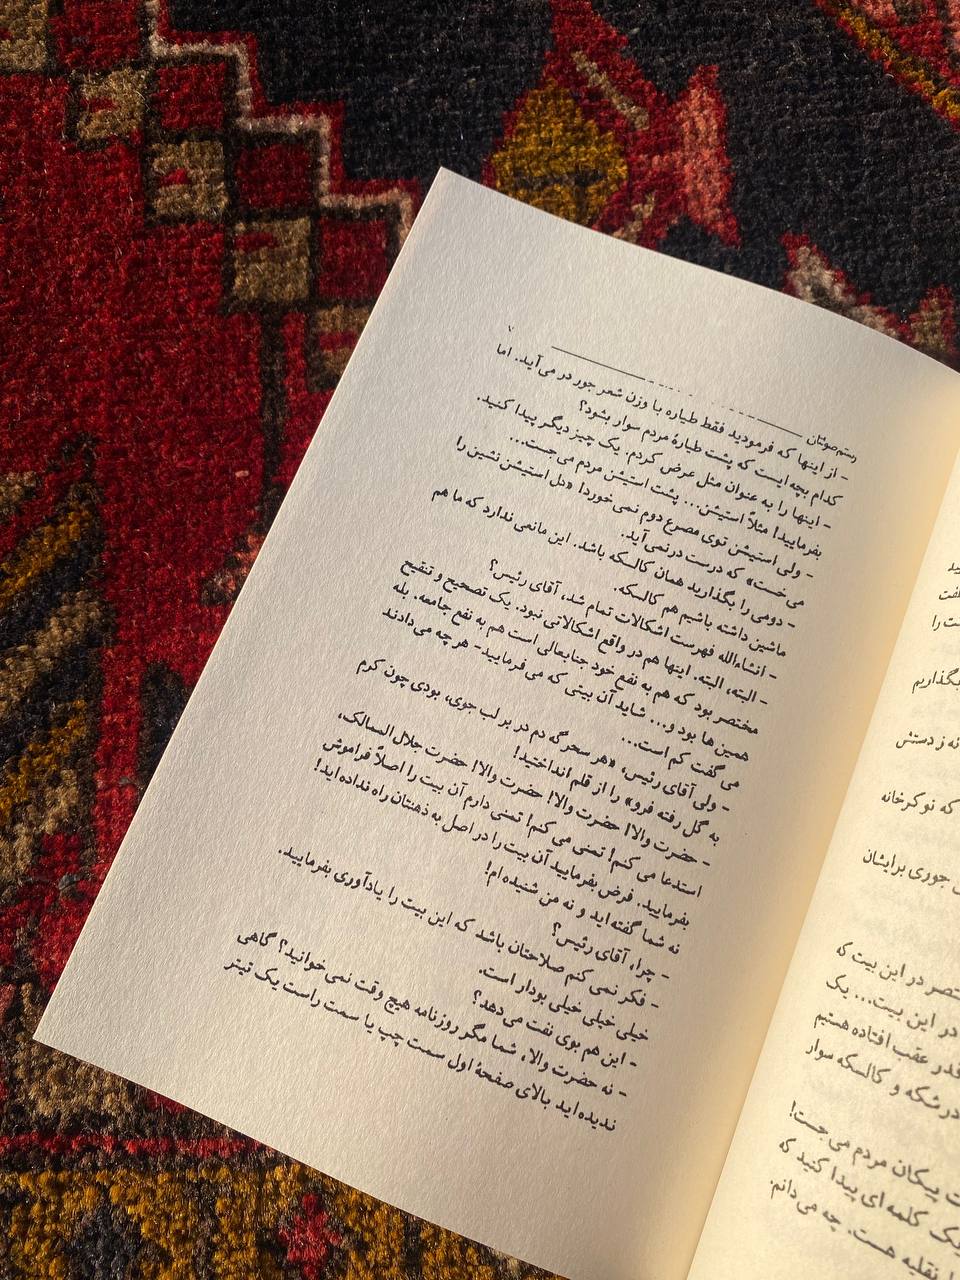 رستم صولتان ۷
- از اینها که فرمودید فقط طیاره با وزن شعر جور در می‌آید. اما
کدام بچه ایست که پشت طیارهٔ مردم سوار بشود؟
- اینها را به عنوان مثل عرض کردم. یک چیز دیگر پیدا کنید.
بفرمایید! مثلاً استیشن... پشت استیشن مردم می‌جست...
- ولی استیشن توی مصرع دوم نمی‌خورد! «دل استیشن نشین را
می‌خست» که درست درنمی‌آید.
- دومی را بگذارید همان کالسکه باشد. این مانعی ندارد که ما هم
ماشین داشته باشیم هم کالسکه.
- انشاءالله فهرست اشکالات تمام شد، آقای رئیس؟
- البته، البته. اینها هم در واقع اشکالاتی نبود. یک تصحیح و تنقیح
مختصر بود که هم به نفع خود جنابعالی است هم به نفع جامعه. بله
همین ها بود و... شاید آن بیتی که می‌فرمایید- هر چه می‌دادند
می‌گفت کم است...
- ولی آقای رئیس، «هر سحرگه دم در بر لب جوی، بودی چون کرم
به گل رفته فرو» را از قلم انداختید!
- حضرت والا! حضرت والا! حضرت جلال الممالک،
استدعا می‌کنم! تمنی می‌کنم! تمنی دارم آن بیت را اصلاً فراموش
بفرمایید. فرض بفرمایید آن بیت را در اصل به ذهنتان راه نداده‌اید!
نه شما گفته‌اید و نه من شنیده‌ام!
- چرا، آقای رئیس؟
- فکر نمی‌کنم صلاحتان باشد که این بیت را یادآوری بفرمایید.
خیلی خیلی خیلی بودار است.
- این هم بوی نفت می‌دهد؟
- نه حضرت والا، شما مگر روزنامه هیچ وقت نمی‌خوانید؟ گاهی
ندیده‌اید بالای صفحهٔ اول سمت چپ یا سمت راست یک تیتر
را
بگذاریم
نه ز دستش
که نوکرخانه
جوری برایشان
در این بیت که
در این بیت... یک
عقب افتاده هستیم
درشکه و کالسکه سوار
پیکان مردم می‌جست!
کلمه‌ای پیدا کنید که
نقلیه هست. چه می‌دانم.